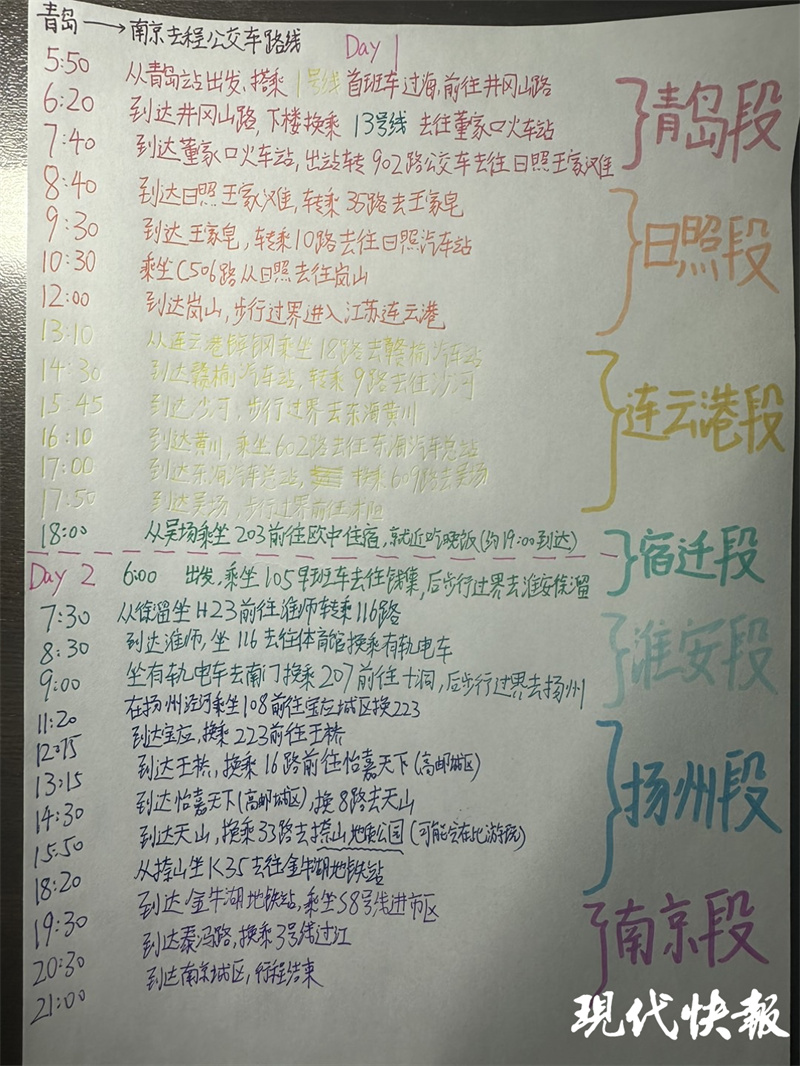 青岛→南京去程公交车路线
Day 1
5:50 从青岛站出发,搭乘1号线首班车过海,前往井冈山路
6:20 到达井冈山路,下楼换乘13号线去往董家口火车站
7:40 到达董家口火车站,出站转902路公交车去往日照王家滩
8:40 到达日照王家滩,转乘36路去王家皂
9:30 到达王家皂,转乘10路去往日照汽车站
10:30 乘坐C506路从日照去往岚山
12:00 到达岚山,步行过界进入江苏连云港
13:10 从连云港镔钢乘坐18路去赣榆汽车站
14:30 到达赣榆汽车站,转乘9路去往沙河
15:45 到达沙河,步行过界去东海黄川
16:10 到达黄川,乘坐602路去往东海汽车总站
17:00 到达东海汽车总站,换乘609路去吴场
17:50 到达吴场,步行过界前往
18:00 从吴场乘坐203前往欧中住宿,就近吃晚饭(约19:00到达)
Day 2
6:00 出发,乘坐105早班车去往钱集,后步行过界去淮安徐溜
7:30 从徐溜坐H23前往淮师转乘116路
8:30 到达淮师,坐116去往体育馆换乘有轨电车
9:00 坐有轨电车去南门换乘207前往十洞,后步行过界去扬州
11:20 在扬州泾河乘坐108前往宝应城区换223
12:15 到达宝应,换乘223前往王桥
13:15 到达王桥,换乘16路前往怡嘉天下(高邮城区)
14:30 到达怡嘉天下(高邮城区),换8路去天山
15:50 到达天山,换乘33路去捺山地质公园(可能会在此游玩)
18:20 从捺山坐K35去往金牛湖地铁站
19:30 到达金牛湖地铁站,乘坐S8号线进市区
20:30 到达泰冯路,换乘3号线过江
21:00 到达南京城区,行程结束
青岛段
日照段
连云港段
宿迁段
淮安段
扬州段
南京段
现代快报